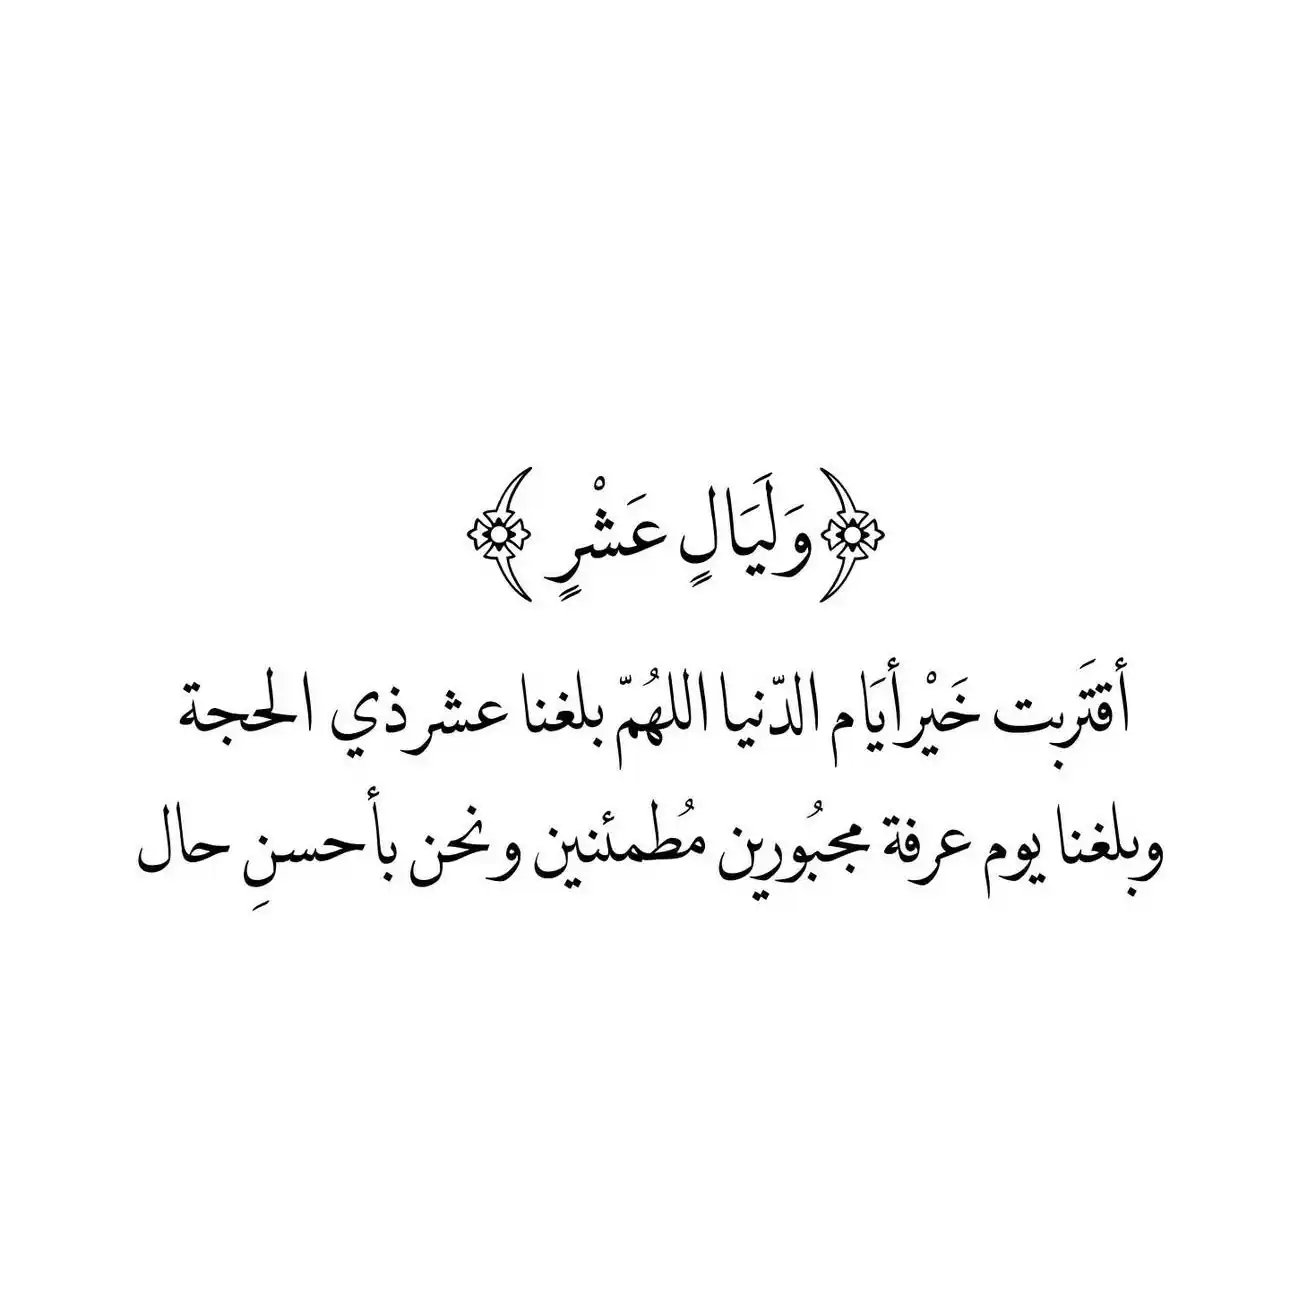 ﴿وَلَيَالٍ عَشْرٍ﴾
أقتَربت خَيْر أيَام الدّنيا اللهُمّ بلغنا عشر ذي الحجة
وبلغنا يوم عرفة مجبُورين مُطمئنين ونحن بأحسنِ حال